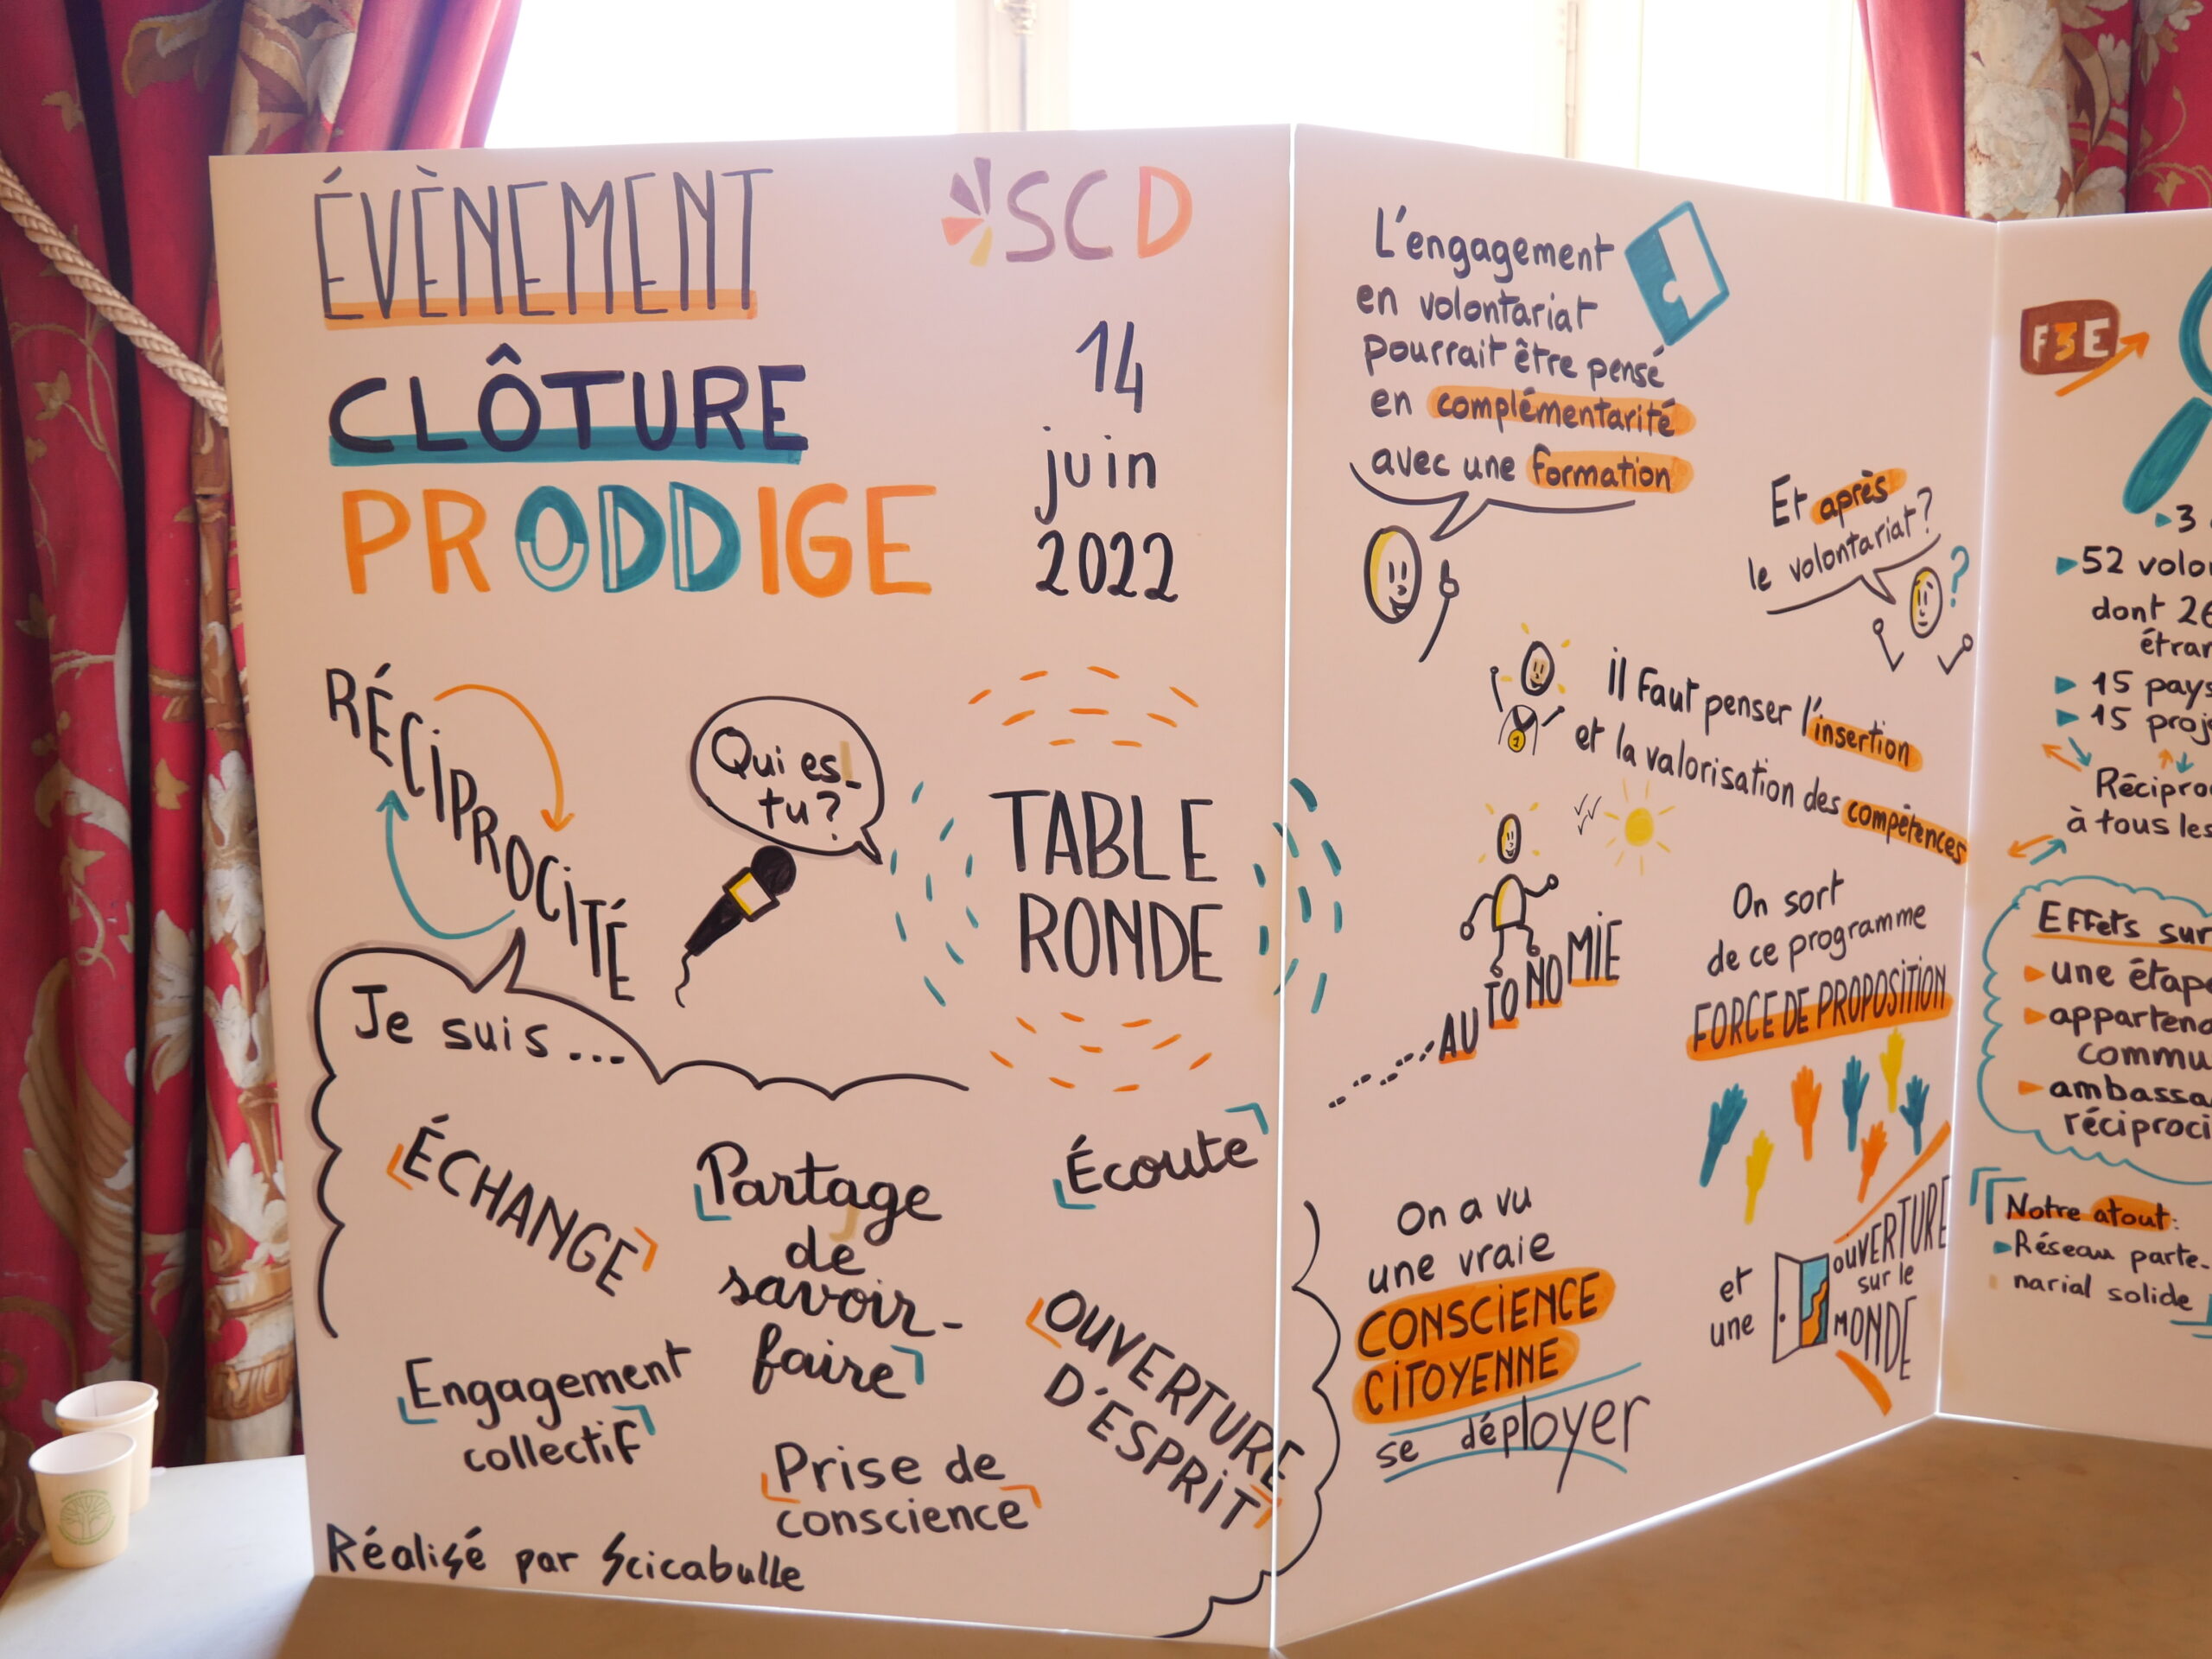 ÉVÈNEMENT
CLÔTURE
PRODDIGE
SCD
14
juin
2022
RÉCIPROCITÉ
Qui es-
tu ?
TABLE
RONDE
Je suis...
ÉCHANGE
Partage
de
savoir-
faire
Écoute
Engagement
collectif
Prise de
conscience
OUVERTURE
D'ESPRIT
Réalisé par Scicabulle
L'engagement
en volontariat
pourrait être pensé
en complémentarité
avec une formation
Et après
le volontariat ?
?
1
il faut penser l'insertion
et la valorisation des compétences
AUTONOMIE
On sort
de ce programme
FORCE DE PROPOSITION
On a vu
une vraie
CONSCIENCE
CITOYENNE
se déployer
et
une
OUVERTURE
sur le
MONDE
F3E
3
52
dont 26
15 pays
15
à tous les
Effets sur
une étape
Notre atout :
Réseau parte-
narial solide